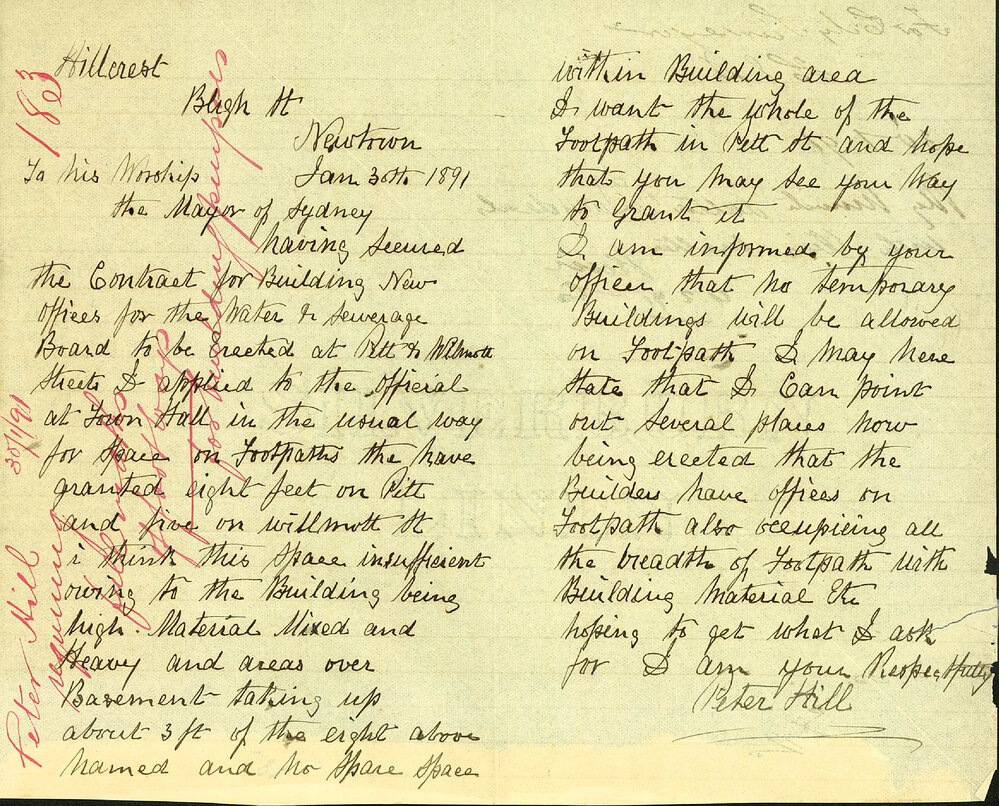 Hillcrest
Bligh St
Newtown
To his Worship Jan 30th 1891
the Mayor of Sydney
having secured
the Contract for Building New
offices for the Water & Sewerage
Board to be Erected at Pitt & Wilmott
Streets I applied to the official
at Town Hall in the usual way
for Space on Footpaths the have
granted eight feet on Pitt
and five on willmott St
i think this Space insufficient
owing to the Building being
high. Material Mixed and
Heavy and areas over
Basement taking up
about 3 ft of the eight above
named and no Spare Space
within Building area
I want the whole of the
Footpath in Pitt St and hope
that you May see your Way
to Grant it
I am informed by your
officer that no temporary
Buildings will be allowed
on Footpath I May here
State that I Can point
out several places now
being erected that the
Builders have offices on
Footpath also occupicing all
the breadth of Footpath with
Building Material Etc
hoping to get what I ask
for I am your Respectfully
Peter Hill
1803
30/1/91
Peter Hill
requiring
footway
for building purposes